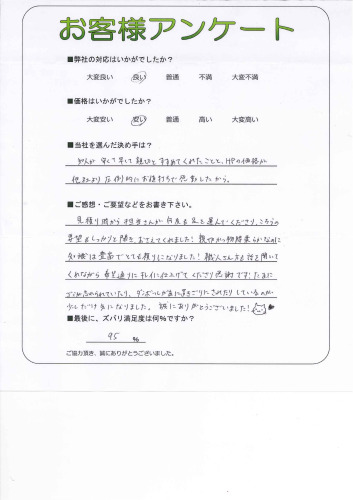 お客様アンケート
■弊社の対応はいかがでしたか?
大変良い 良い 普通 不満 大変不満
■価格はいかがでしたか?
大変安い 安い 普通 高い 大変高い
■当社を選んだ決め手は?
知人が 早くて安くて親切と すすめてくれたことと、HPの価格が
他社より圧倒的にお値打ちで感動したから。
■ご感想・ご要望などをお書き下さい。
見積り時から担当さんが何度も足を運んでくださり、こちらの
要望もしっかりと聞き、おさえてくれました! 親切かつ物腰柔らかなのに
知識は豊富でとても頼りになりました! 職人さん方も話を聞いて
くれながら希望通りにキレイに仕上げてくださり感謝です! たまに
ゴミが忘れられていたり、ダンボールが
少しだけ気になりました。誠にありがとうございました!
■最後に、ズバリ満足度は何%ですか?
95 %
ご協力頂き、誠にありがとうございました。